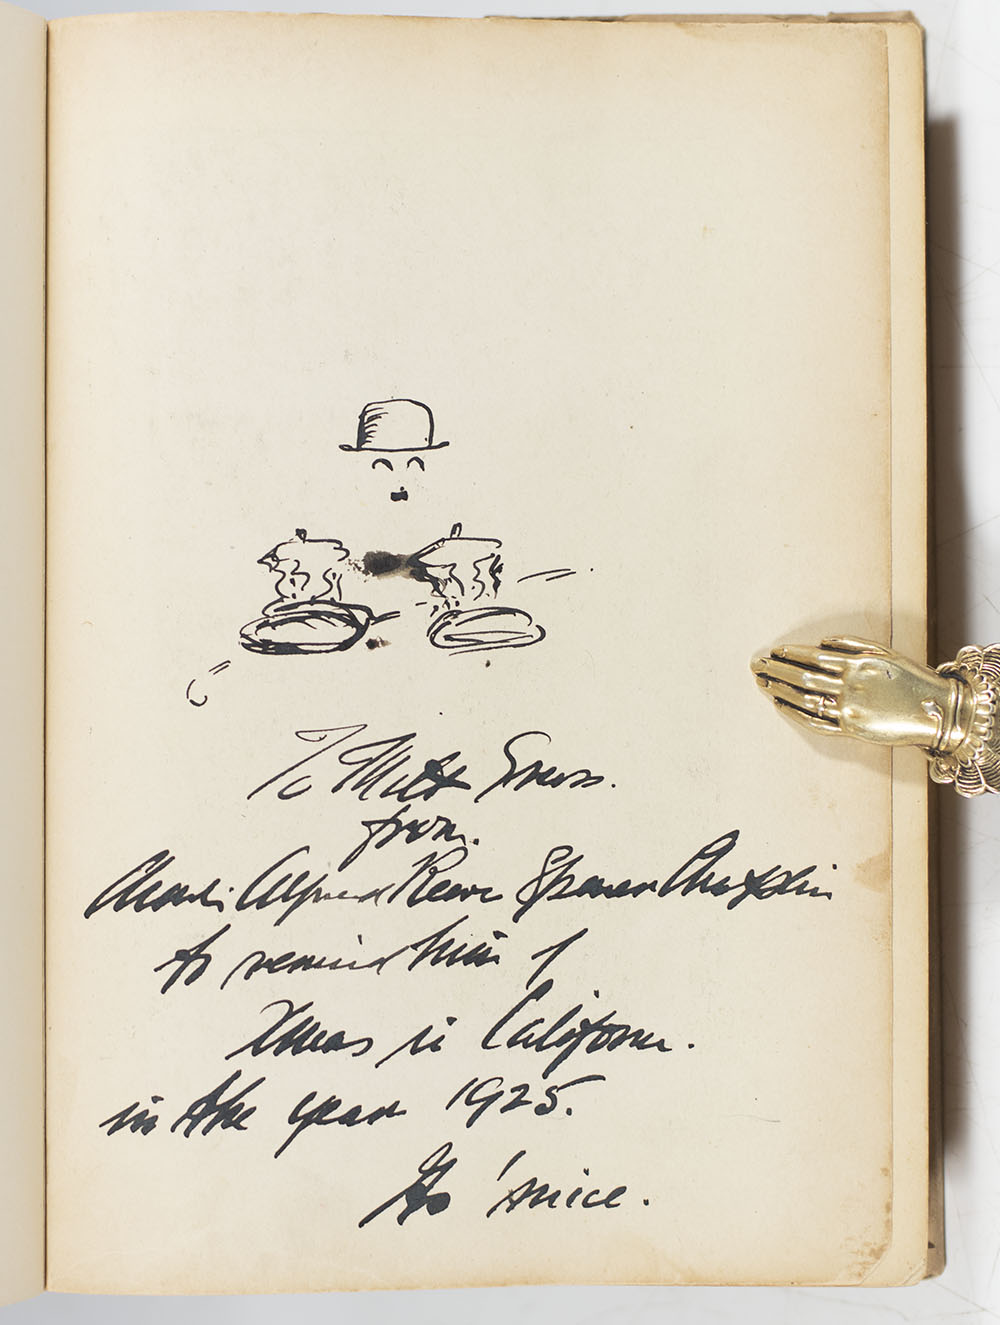 To Milt Gross.
from.
Charlie Alfred Reeve Spencer Chaplin
to remind him of
Xmas in California.
in the year 1925.
'nice.